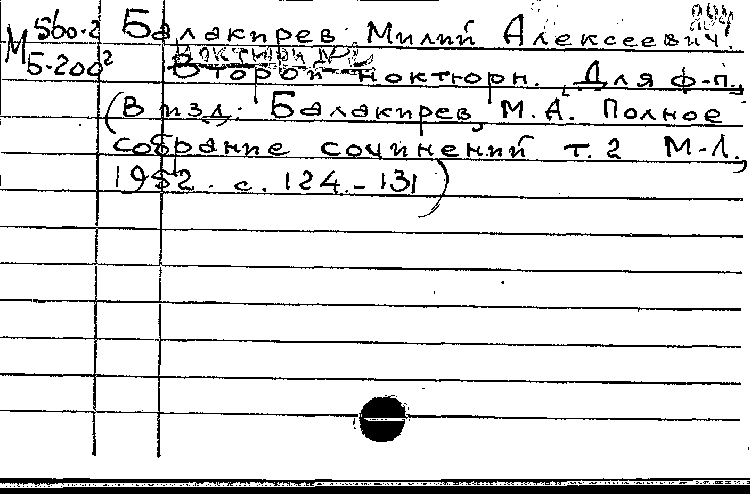 М 560-2 Балакирев Милий Алексеевич.
Б-200² Ноктюрн №2
Второй ноктюрн. Для ф-п.,
(В изд: Балакирев, М.А. Полное
собрание сочинений т.2 М-Л.,
1952. с. 124.-131)